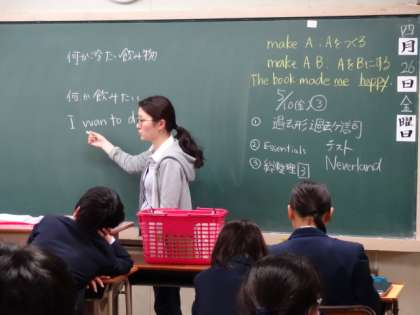 何か冷たい飲み物
何か飲みたい
I wan to d
make A : Aをつくる
make A B : AをBにする
The book made me happy.
5/10(金)③
① 過去形 過去分詞
② Essentials テスト
③ 総整理3 Neverland
四月26日金曜日